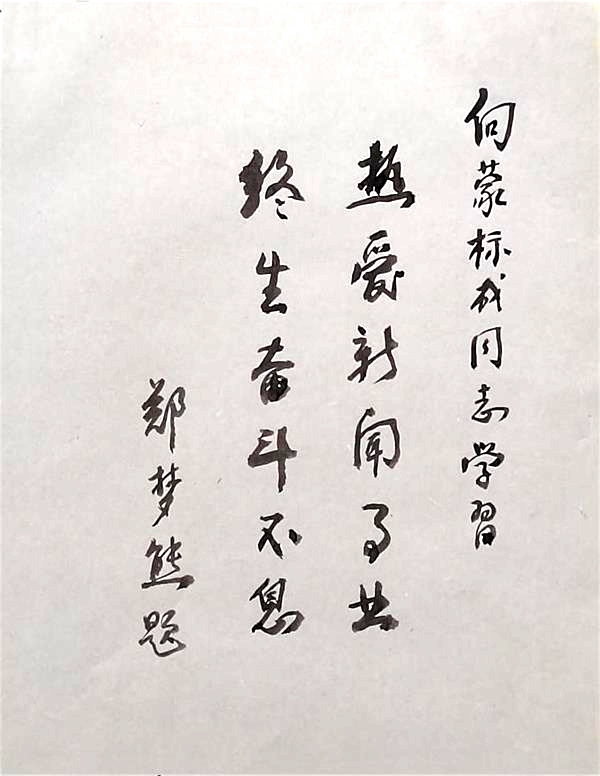 向蒙标成同志学習
热爱新闻事业
终生奋斗不息
郑梦熊题